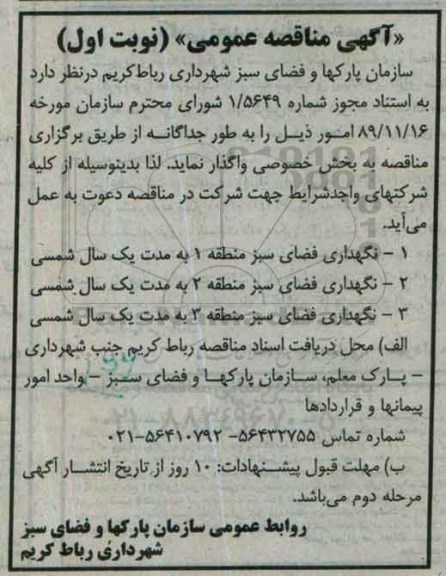 «آگهی مناقصه عمومی» (نوبت اول)
سازمان پارکها و فضای سبز شهرداری رباط‌کریم درنظر دارد
به استناد مجوز شماره ۱/۵۶۴۹ شورای محترم سازمان مورخه
۸۹/۱۱/۱۶ امور ذیل را به طور جداگانه از طریق برگزاری
مناقصه به بخش خصوصی واگذار نماید. لذا بدینوسیله از کلیه
شرکتهای واجدشرایط جهت شرکت در مناقصه دعوت به عمل
می‌آید.
۱ – نگهداری فضای سبز منطقه ۱ به مدت یک سال شمسی
۲ – نگهداری فضای سبز منطقه ۲ به مدت یک سال شمسی
۳ – نگهداری فضای سبز منطقه ۳ به مدت یک سال شمسی
الف) محل دریافت اسناد مناقصه رباط کریم جنب شهرداری
– پارک معلم، سازمان پارکها و فضای سبز – واحد امور
پیمانها و قراردادها
شماره تماس ۵۶۴۳۲۷۵۵- ۵۶۴۱۰۷۹۲-۰۲۱
ب) مهلت قبول پیشنهادات: ۱۰ روز از تاریخ انتشار آگهی
مرحله دوم می‌باشد.
روابط عمومی سازمان پارکها و فضای سبز
شهرداری رباط کریم